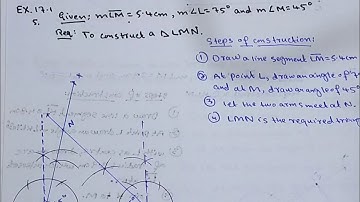 EX. 17.1
5. Given: m LM = 5.4cm, m∠L = 75° and m∠M = 45°
Req: To construct a Δ LMN.
Steps of construction:
① Draw a line segment LM = 5.4cm
② At point L, draw an angle of 75
and at M, draw an angle of 45°
③ Let the two arms meet at N.
④ LMN is the required
N